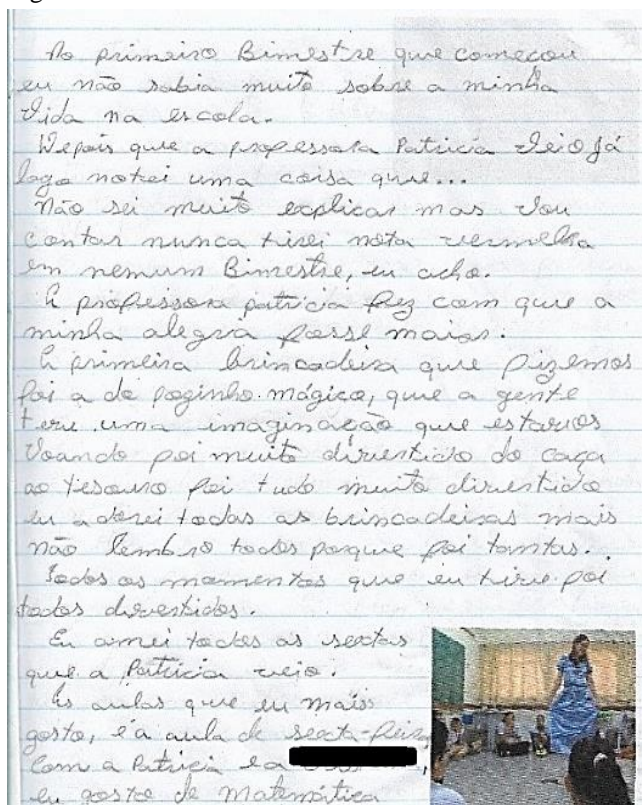 No primeiro Bimestre que começou
eu não sabia muito sobre a minha
vida na escola.
Depois que a professora Patricia veio já
logo notei uma coisa que...
Não sei muito explicar mas vou
contar nunca tirei nota vermelha
em nemum Bimestre, eu acho.
A professora patricia fez com que a
minha alegria fosse maior.
A primeira brincadeira que fizemos
foi a do foginho mágico, que a gente
teve uma imaginação que estavos
voando foi muito divertido do caça
ao tesouro foi tudo muito divertido
eu adorei todas as brincadeiras mais
não lembro todos porque foi tantas.
Todos os momentos que eu tive foi
todos divertidos.
Eu amei todas as sextas
que a Patricia veio.
As aulas que eu mais
gosto, é a aula de sexta-feira,
Com a Patricia e a
eu gosto de Matemática